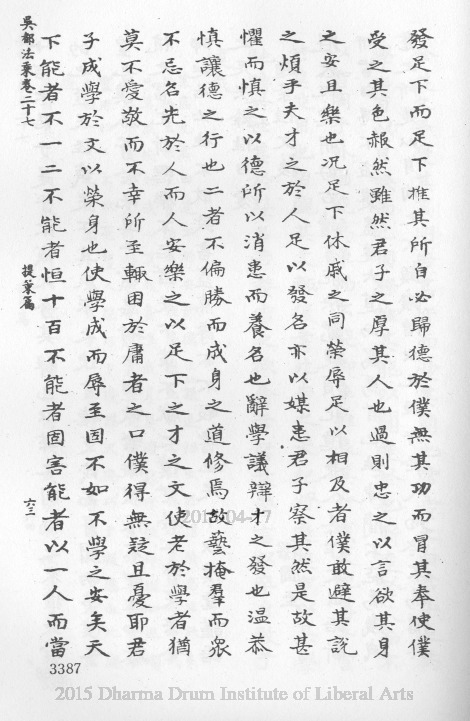 發足下而足下推其所自必歸德於僕無其功而冒其奉使僕
受之其色赧然雖然君子之厚其人也過則忠之以言欲其身
之安且樂也况足下休戚之同榮辱足以相及者僕敢避其說
之煩乎夫才之於人足以發名亦以媒患君子察其然是故甚
懼而慎之以德所以消患而養名也辭學議辯才之發也温恭
慎讓德之行也二者不偏勝而成身之道修焉故藝掩羣而衆
不忌名先於人而人安樂之以足下之才之文使老於學者猶
莫不愛敬而不幸所至輙困於庸者之口僕得無疑且憂耶君
子成學於文以榮身也使學成而辱至固不如不學之安矣天
下能者不一二不能者恒十百不能者固害能者以一人而當
吳都法乘卷二十七
提葉篇
六三
2015-04-17
3387
2015 Dharma Drum Institute of Liberal Arts